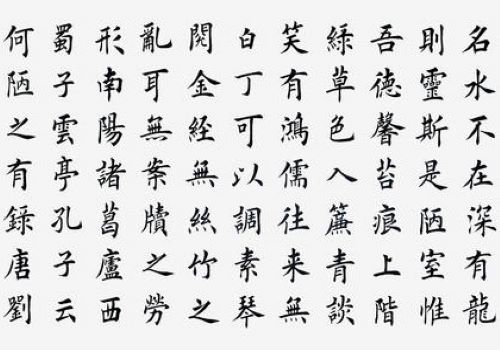 名水不在深有龍
則靈斯是陋室惟
吾德馨苔痕上階
綠草色入簾青談
笑有鴻儒往来無
白丁可以調素琴
閱金經無絲竹之
亂耳無案牘之勞
形南陽諸葛廬西
蜀子雲亭孔子云
何陋之有錄唐劉